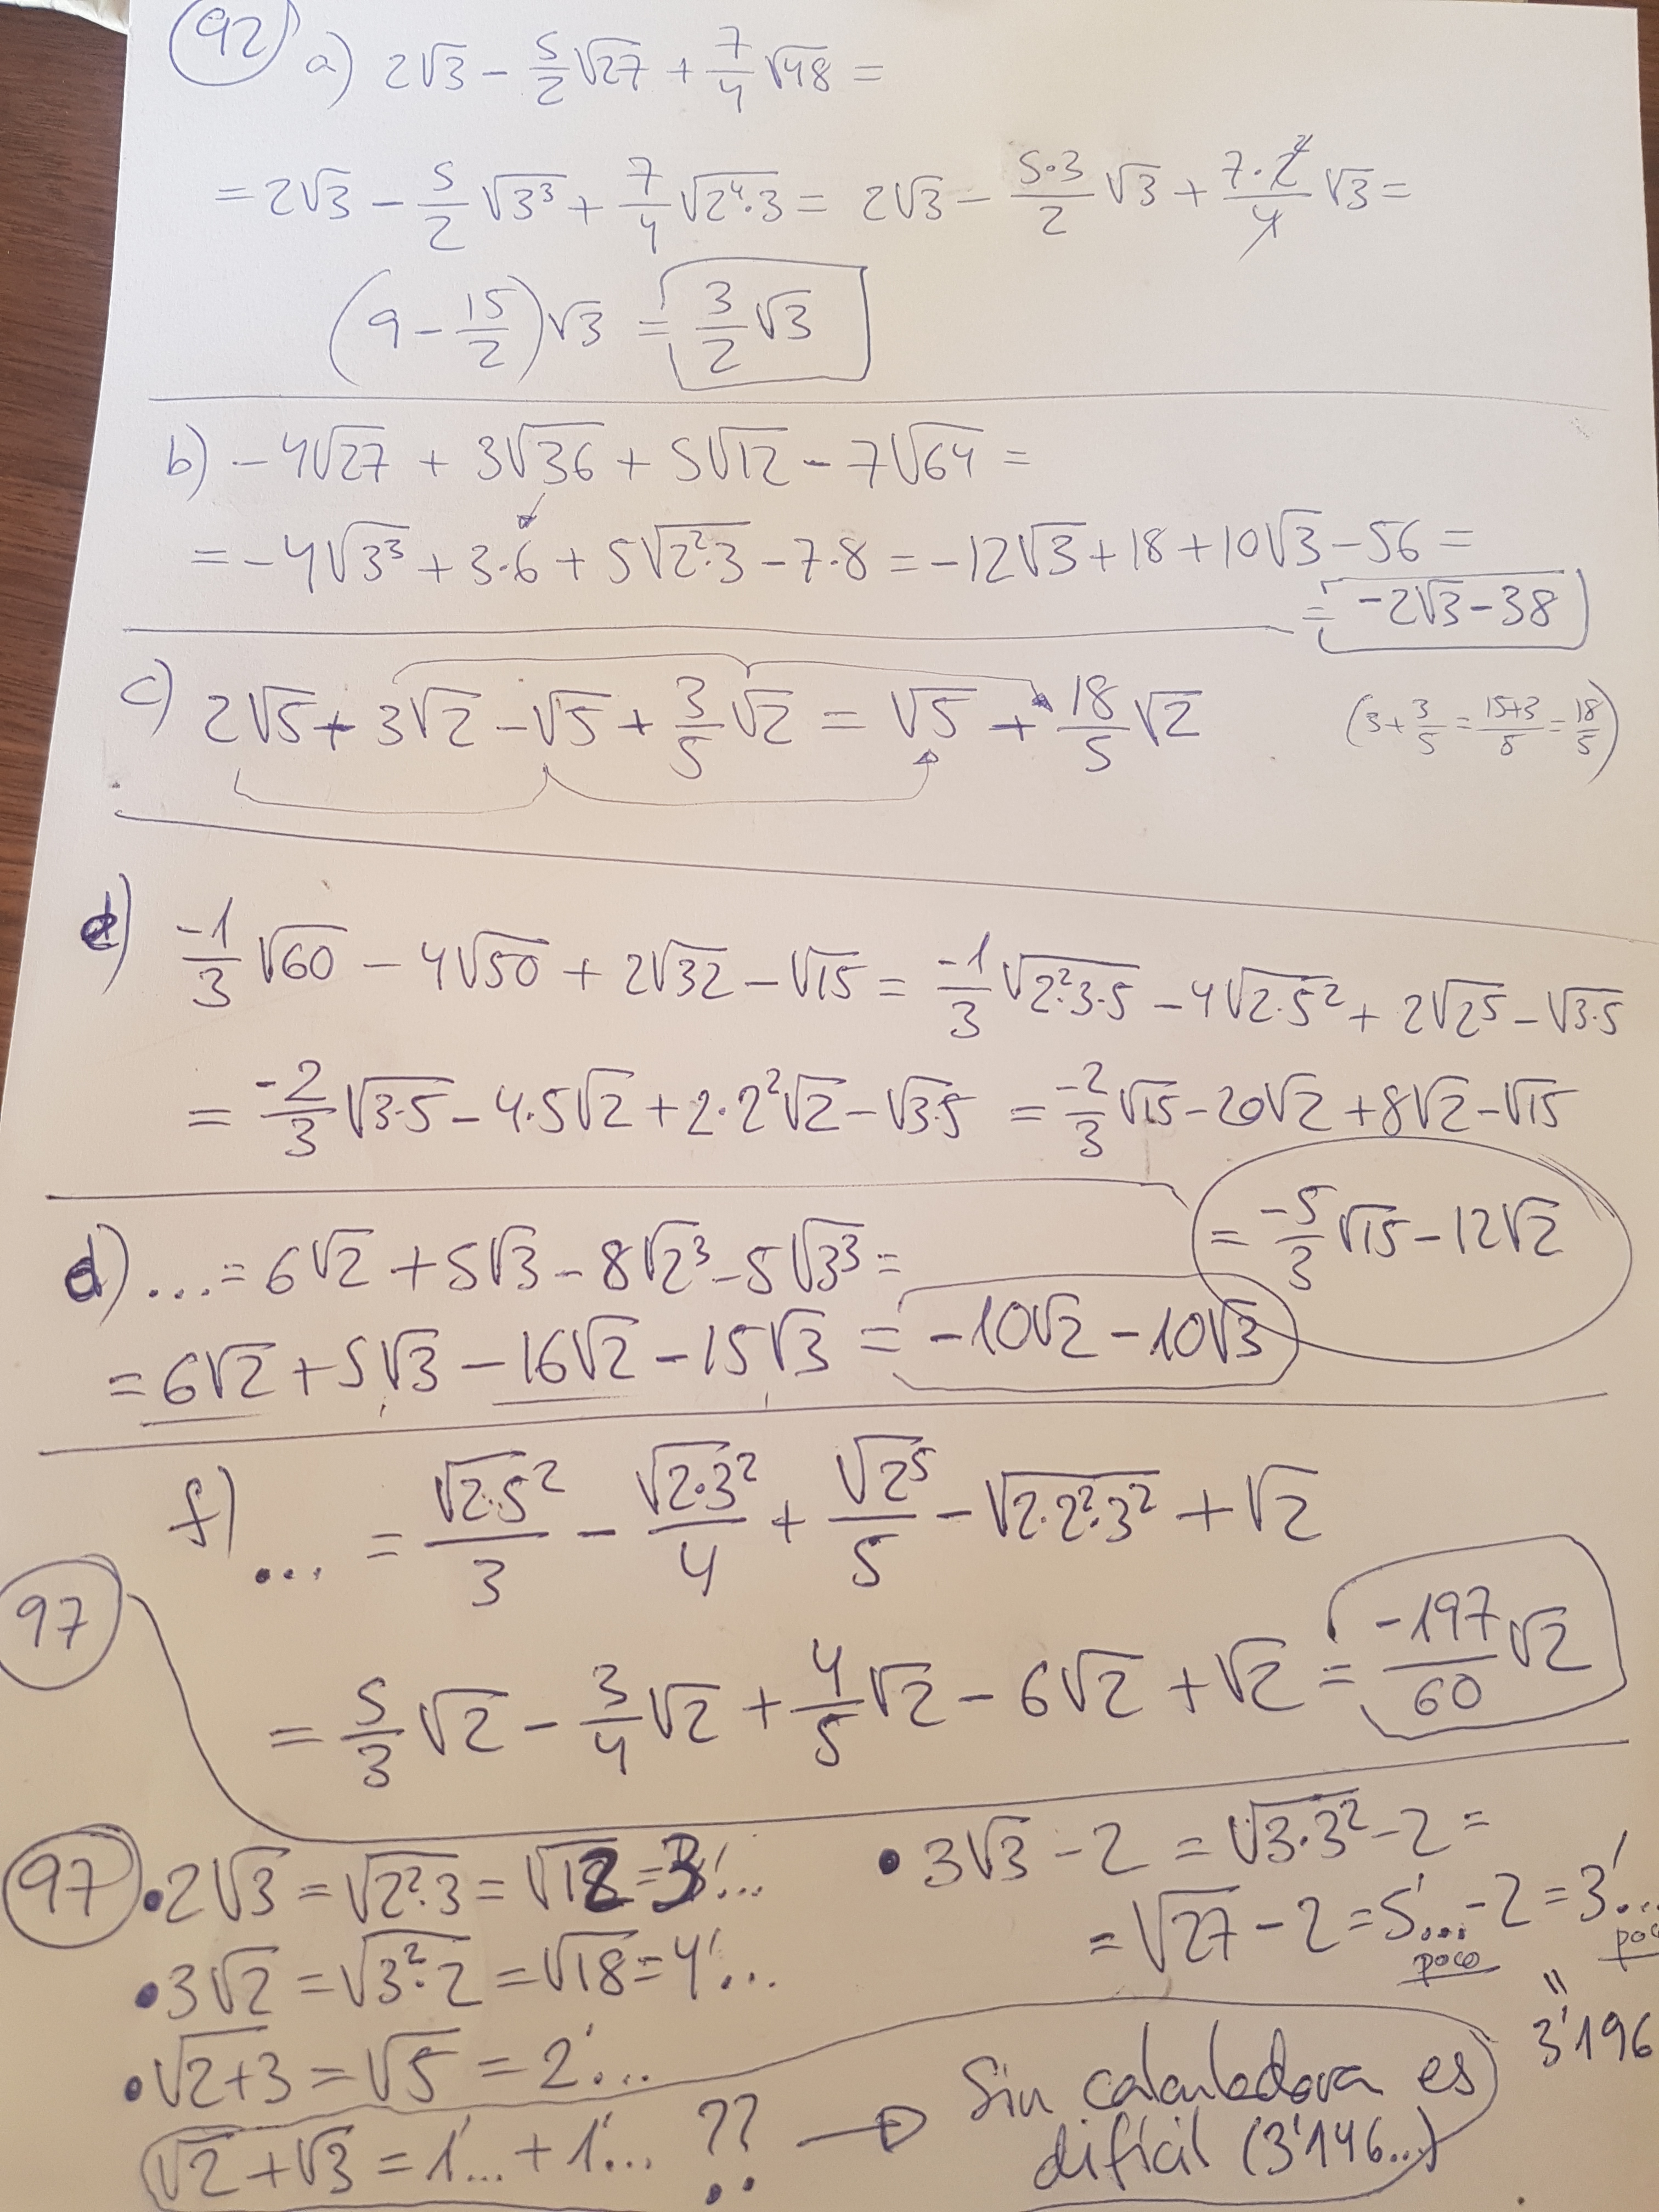 92) a) 2√3 - 5/2 √27 + 7/4 √48 =
= 2√3 - 5/2 √3³ + 7/4 √2⁴·3 = 2√3 - 5·3/2 √3 + 7·2²/4 √3 =
(9 - 15/2)√3 = 3/2 √3
b) -4√27 + 3√36 + 5√12 - 7√64 =
= -4√3³ + 3·6 + 5√2²·3 - 7·8 = -12√3 + 18 + 10√3 - 56 =
= -2√3 - 38
c) 2√5 + 3√2 - √5 + 3/5 √2 = √5 + 18/5 √2 (3 + 3/5 = 15+3/5 = 18/5)
e) -1/3 √60 - 4√50 + 2√32 - √15 = -1/3 √2²·3·5 - 4√2·5² + 2√2⁵ - √3·5
= -2/3 √3·5 - 4·5√2 + 2·2²√2 - √3·5 = -2/3 √15 - 20√2 + 8√2 - √15
= -5/3 √15 - 12√2
d) ... = 6√2 + 5√3 - 8√2³ - 5√3³ =
= 6√2 + 5√3 - 16√2 - 15√3 = -10√2 - 10√3
f) ... = √2·5²/3 - √2·3²/4 + √2⁵/5 - √2·2²·3² + √2
97
= 5/3 √2 - 3/4 √2 + 4/5 √2 - 6√2 + √2 = -197/60 √2
97 • 2√3 = √2²·3 = √12 = 3'...
• 3√2 = √3²·2 = √18 = 4'...
• √2+3 = √5 = 2'...
√2 + √3 = 1'... + 1'... ?? → Sin calculadora es
difícil (3'146...)
• 3√3 - 2 = √3·3² - 2 =
= √27 - 2 = 5'... - 2 = 3'...
poco
"
3'196